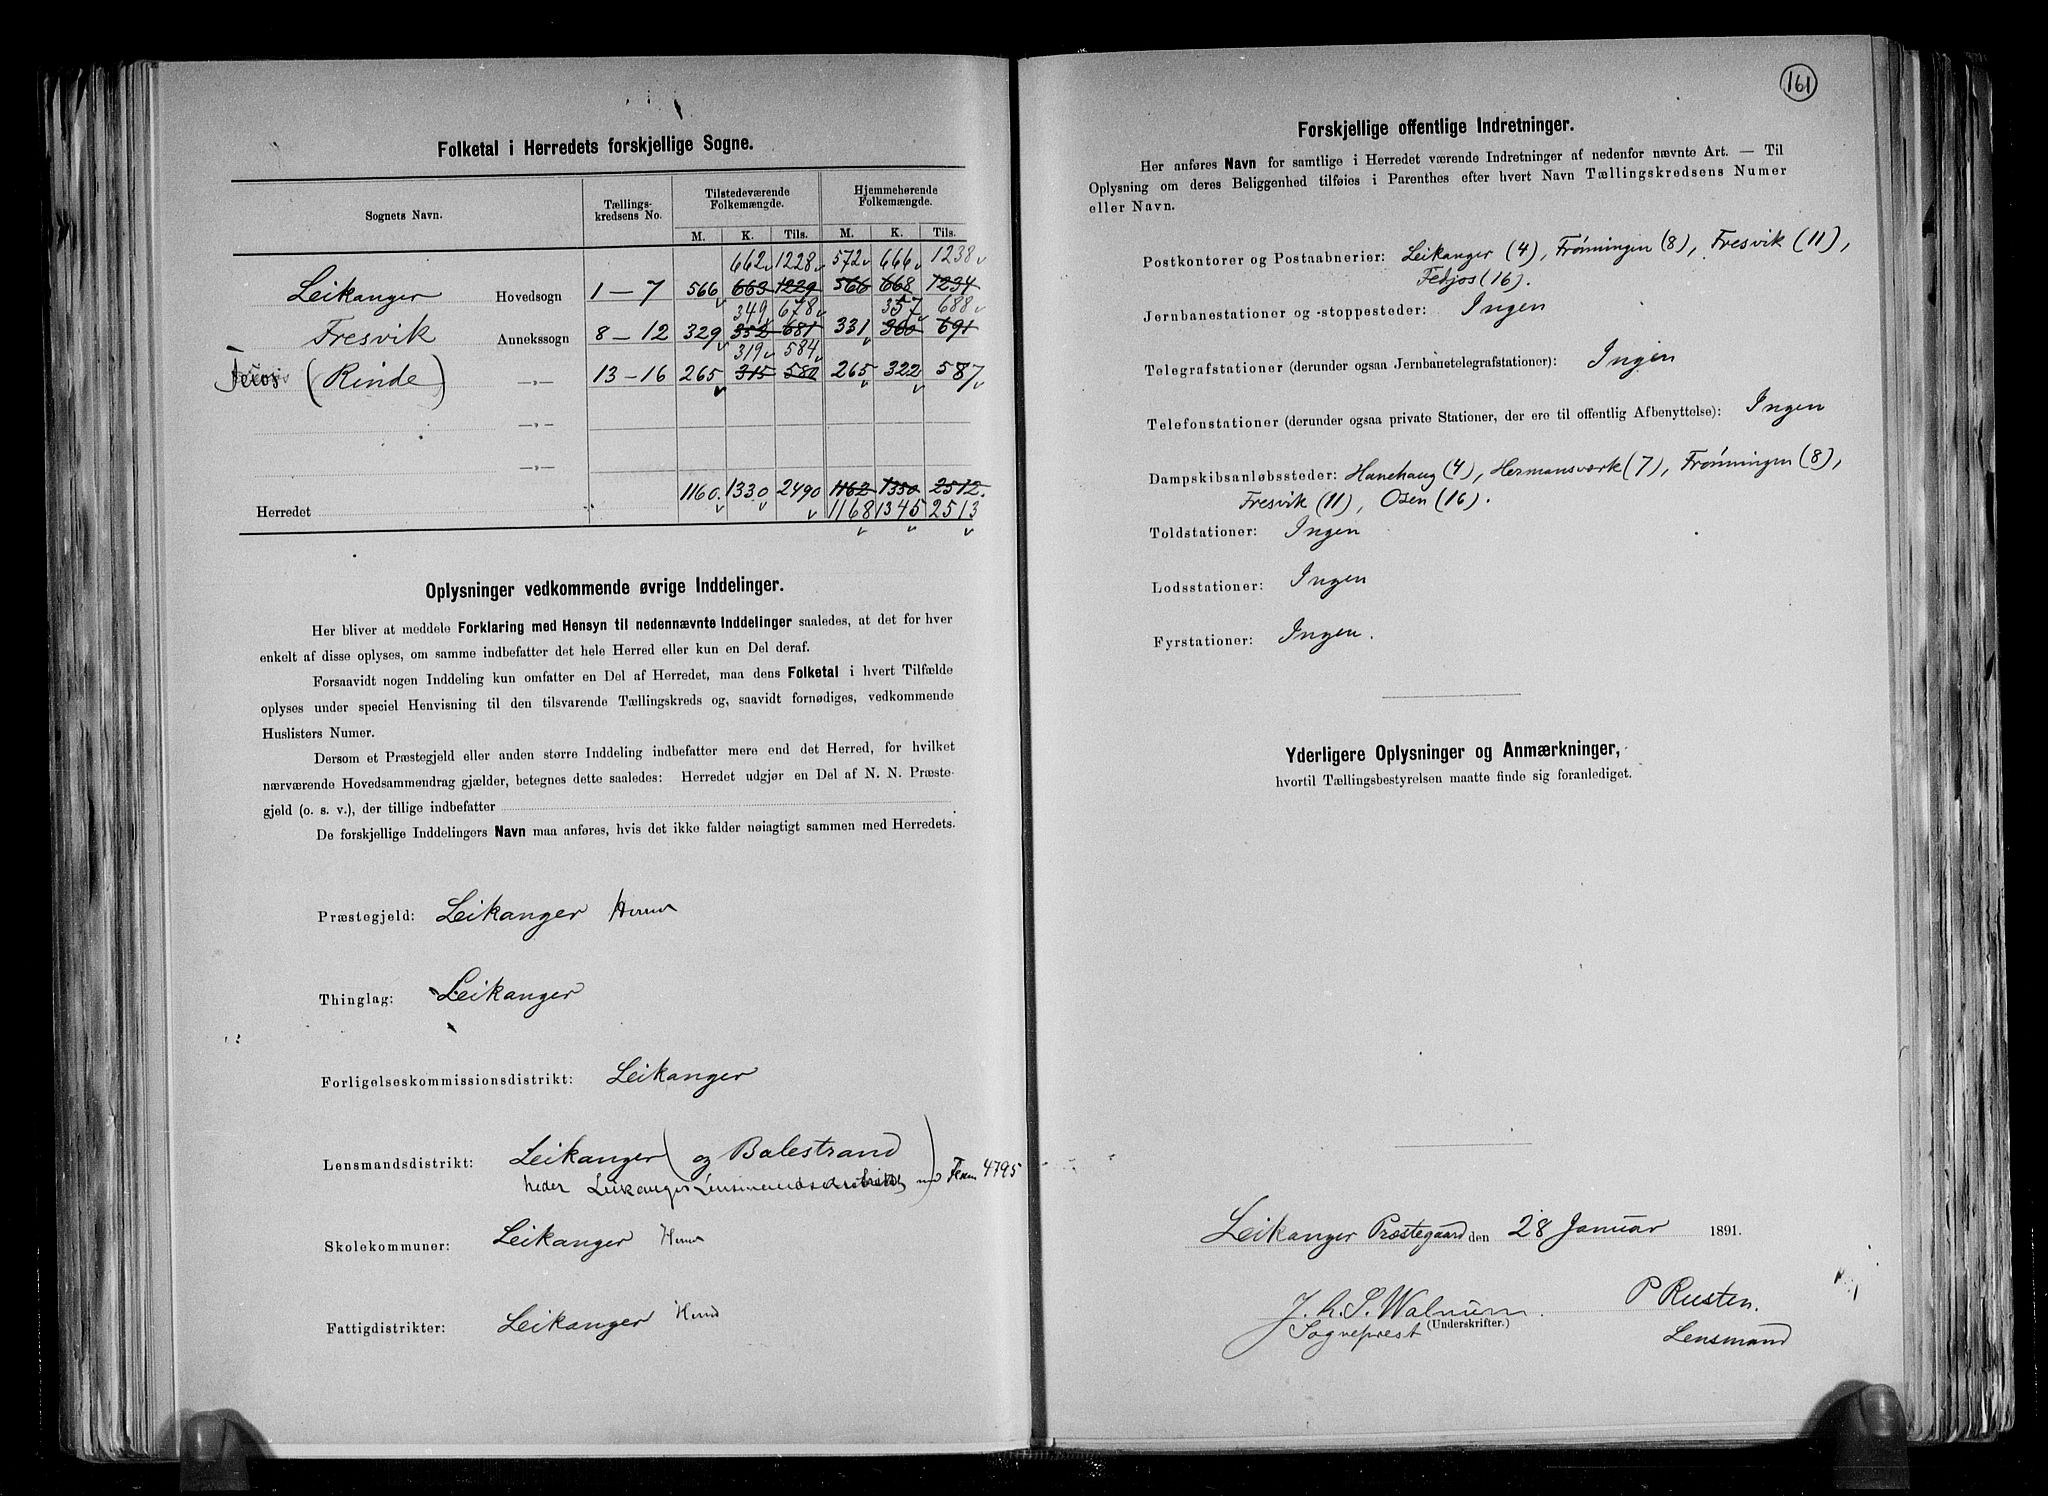 Folketal i Herredets forskjellige Sogne.
Sognets Navn. Tællings- kredsens No. Tilstedeværende Folkemængde. Hjemmehørende Folkemængde.
M. K. Tils. M. K. Tils.
662 1228 572 666 1238
Leikanger Hovedsogn 1 – 7 566 663 1229 566 668 1234
349 678 357 688
Fresvik Annekssogn 8 – 12 329 352 681 331 360 691
319 584
Feios (Rinde) -„- 13 – 16 265 315 580 265 322 587
-„-
-„-
1160 1330 2490 1162 1350 2512
Herredet 1168 1345 2513
Oplysninger vedkommende øvrige Inddelinger.
Her bliver at meddele Forklaring med Hensyn til nedennævnte Inddelinger saaledes, at det for hver
enkelt af disse oplyses, om samme indbefatter det hele Herred eller kun en Del deraf.
Forsaavidt nogen Inddeling kun omfatter en Del af Herredet, maa dens Folketal i hvert Tilfælde
oplyses under speciel Henvisning til den tilsvarende Tællingskreds og, saavidt fornødiges, vedkommende
Huslisters Numer.
Dersom et Præstegjeld eller anden større Inddeling indbefatter mere end det Herred, for hvilket
nærværende Hovedsammendrag gjælder, betegnes dette saaledes: Herredet udgjør en Del af N. N. Præste-
gjeld (o. s. v.), der tillige indbefatter
De forskjellige Inddelingers Navn maa anføres, hvis det ikke falder nøiagtigt sammen med Herredets.
Præstegjeld: Leikanger
Thinglag: Leikanger
Forligelseskommissionsdistrikt: Leikanger
Lensmandsdistrikt: Leikanger (og Balestrand)
heder Leikanger Lensmandsdistrikt 4795
Skolekommuner: Leikanger
Fattigdistrikter: Leikanger
161
Forskjellige offentlige Indretninger.
Her anføres Navn for samtlige i Herredet værende Indretninger af nedenfor nævnte Art. — Til
Oplysning om deres Beliggenhed tilføies i Parenthes efter hvert Navn Tællingskredsens Numer
eller Navn.
Postkontorer og Postaabnerier: Leikanger (4), Frønningen (8), Fresvik (11),
Fedjos (16).
Jernbanestationer og -stoppesteder: Ingen
Telegrafstationer (derunder ogsaa Jernbanetelegrafstationer): Ingen
Telefonstationer (derunder ogsaa private Stationer, der ere til offentlig Afbenyttelse): Ingen
Dampskibsanløbssteder: Hanehaug (4), Hermansværk (7), Frønningen (8),
Fresvik (11), Osen (16).
Toldstationer: Ingen
Lodsstationer: Ingen
Fyrstationer: Ingen.
Yderligere Oplysninger og Anmærkninger,
hvortil Tællingsbestyrelsen maatte finde sig foranlediget.
Leikanger Præstegaard den 28 Januar 1891.
J. L. S. Walnum. P Rusten.
(Underskrifter.)
Sogneprest Lensmand